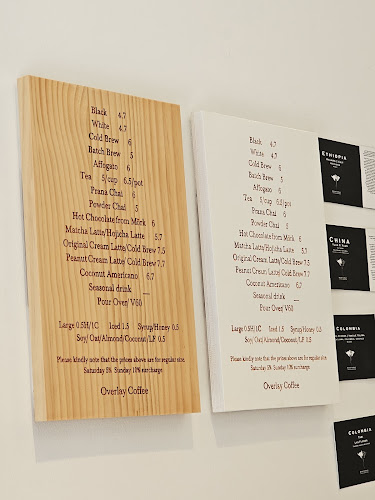 Black 4.7
White 4.7
Cold Brew 6
Batch Brew 5
Affogato 6
Tea 5/cup 6.5/pot
Prana Chai 6
Powder Chai 5
Hot Chocolate from Mörk 6
Matcha Latte/Hojicha Latte 5.7
Original Cream Latte/Cold Brew 7.5
Peanut Cream Latte/Cold Brew 7.7
Coconut Americano 6.7
Seasonal drink
Pour Over/V60
Large 0.5H/1C Iced 1.5 Syrup/Honey 0.5
Soy/Oat/Almond/Coconut/LF 0.5
Please kindly note that the prices above are for regular size.
Saturday 5% Sunday 10% surcharge.
Overlay Coffee
Black 4.7
White 4.7
Cold Brew 6
Batch Brew 5
Affogato 6
Tea 5/cup 6.5/pot
Prana Chai 6
Powder Chai 5
Hot Chocolate from Mörk 6
Matcha Latte/Hojicha Latte 5.7
Original Cream Latte/Cold Brew 7.5
Peanut Cream Latte/Cold Brew 7.7
Coconut Americano 6.7
Seasonal drink
Pour Over/V60
Large 0.5H/1C Iced 1.5 Syrup/Honey 0.5
Soy/Oat/Almond/Coconut/LF 0.5
Please kindly note that the prices above are for regular size.
Saturday 5% Sunday 10% surcharge.
Overlay Coffee
ETHIOPIA
CHINA
COLOMBIA
COLOMBIA